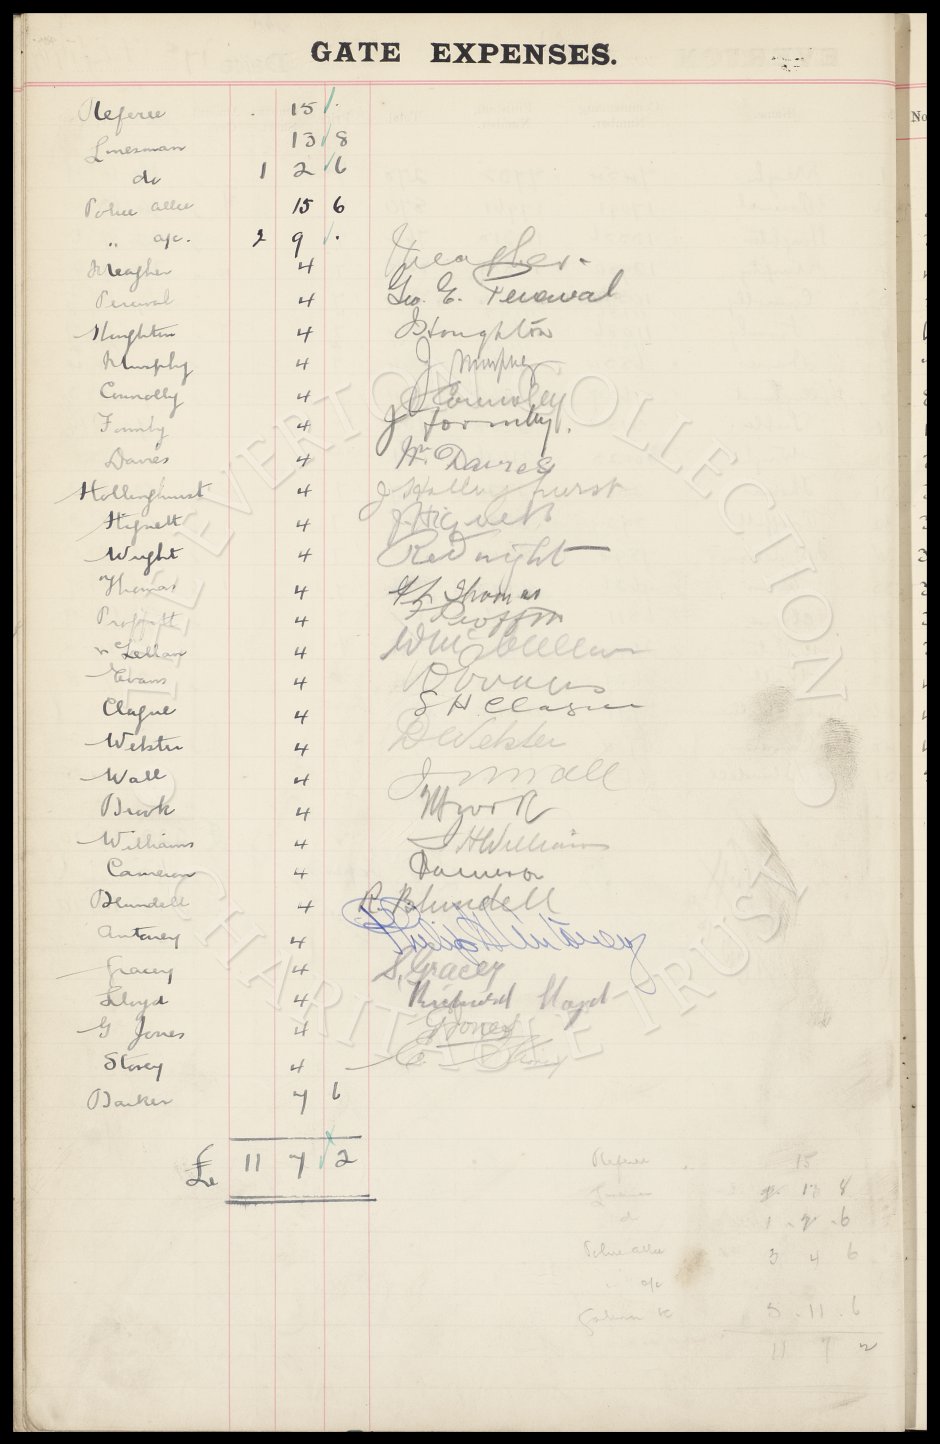 GATE EXPENSES.
Referee . 15 .
Linesman 13 8
do 1 2 6
Police allce 15 6
„ a/c. 2 9 .
Meagher 4 Meagher.
Percival 4 Geo. E. Percival
Houghton 4 Houghton
Murphy 4 J Murphy
Connolly 4 Connolly
Formby 4 J Formby.
Davies 4 Wm Davies
Hollinghurst 4 J Hollinghurst
Hignett 4 J. Hignett
Wright 4 Wright
Thomas 4 Thomas
Proffitt 4 Proffitt
4
Evans 4 Evans
Clague 4 S H Clague
Webster 4 D Webster
Wall 4 J Wall
Brook 4 Brook
Williams 4 H Williams
Cameron 4 Cameron
Blundell 4 R. Blundell
Antoney 4 Philip Antoney
Gracey 4 S, Gracey
Lloyd 4 Richard Lloyd
G Jones 4 G Jones
Storey 4
Barker 7 6
£ 11 7 2
Referee . 15
13 8
do 1 . 2 . 6
Police allce 3 4 6
a/c
5 . 11 . 6
11 7 2
No
THE EVERTON COLLECTION CHARITABLE TRUST